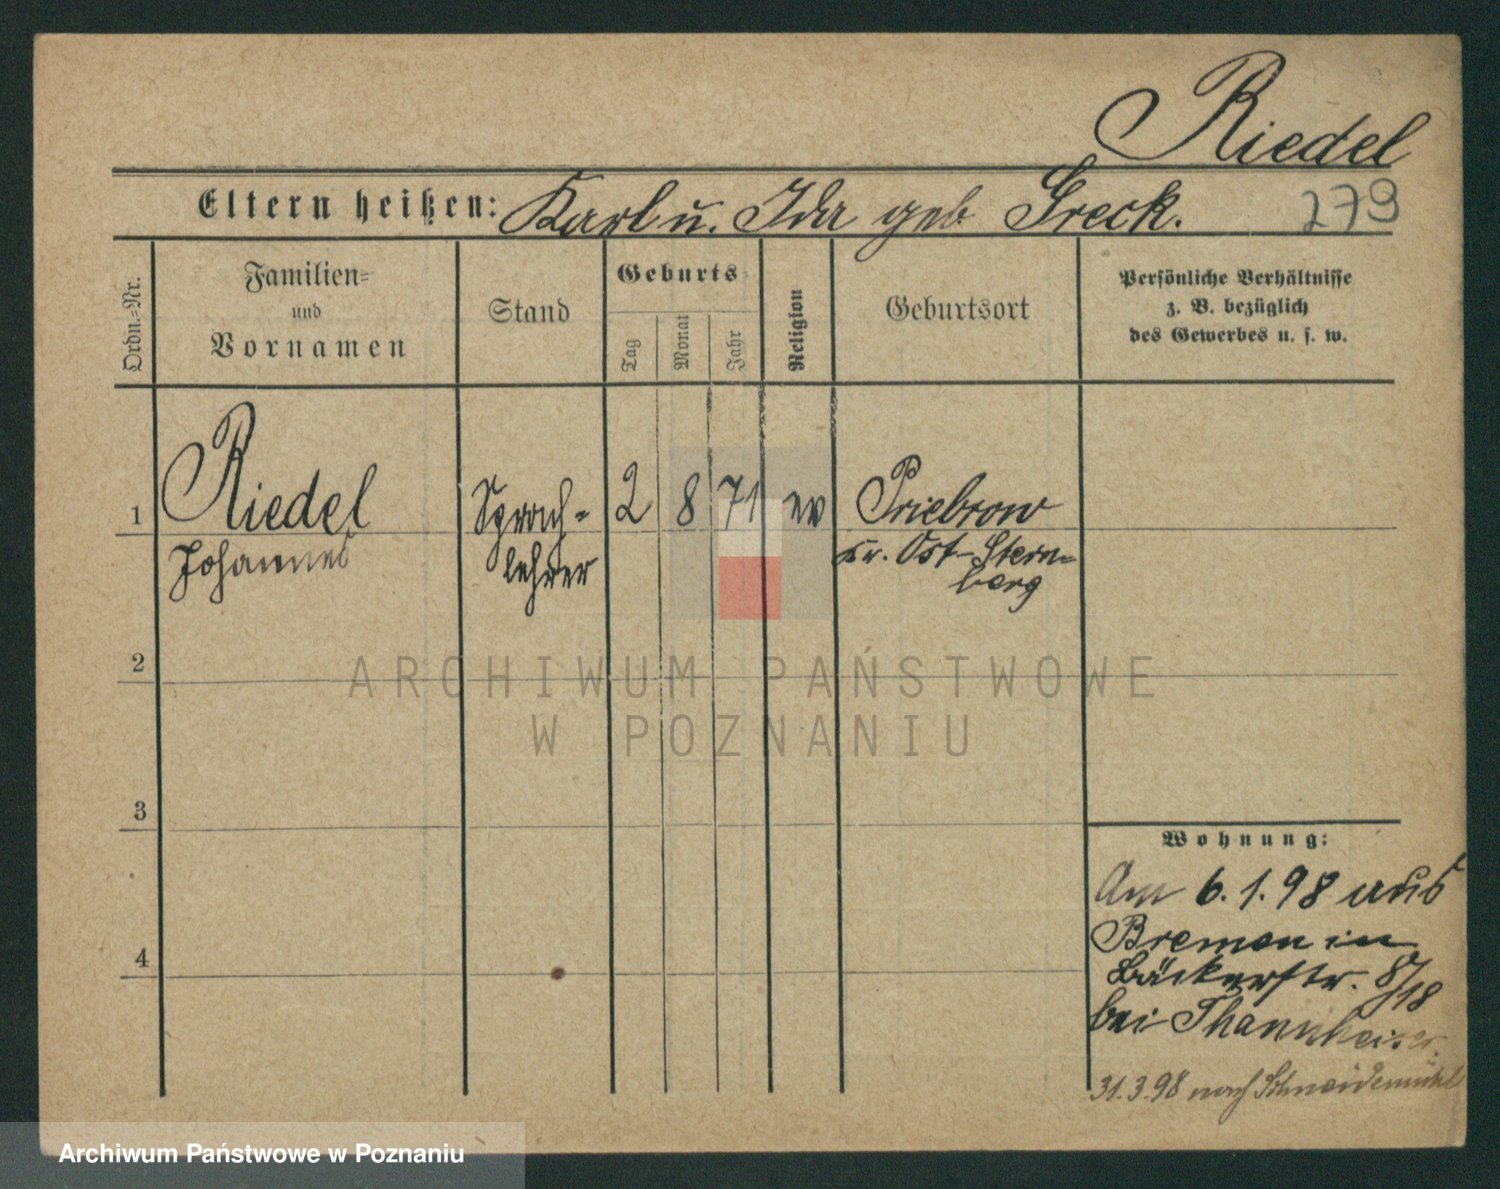 Riedel
Eltern heißen: Karl u. Ida geb Greck. 279
Ordn.=Nr.
Familien=
und
Vornamen
Stand
Geburts=
Tag
Monat
Jahr
Religion
Geburtsort
Persönliche Verhältnisse
z. B. bezüglich
des Gewerbes u. s. w.
1 Riedel Sprach- 2 8 71 ev Priebrow
Johannes lehrer Kr. Ost-Stern-
berg
2
ARCHIWUM PAŃSTWOWE
W POZNANIU
3
Wohnung:
Am 6.1.98 aus
Bremen in
Bäckerstr. 8/18
bei Thannheiser.
4
31.3.98 nach Schneidemühl
Archiwum Państwowe w Poznaniu